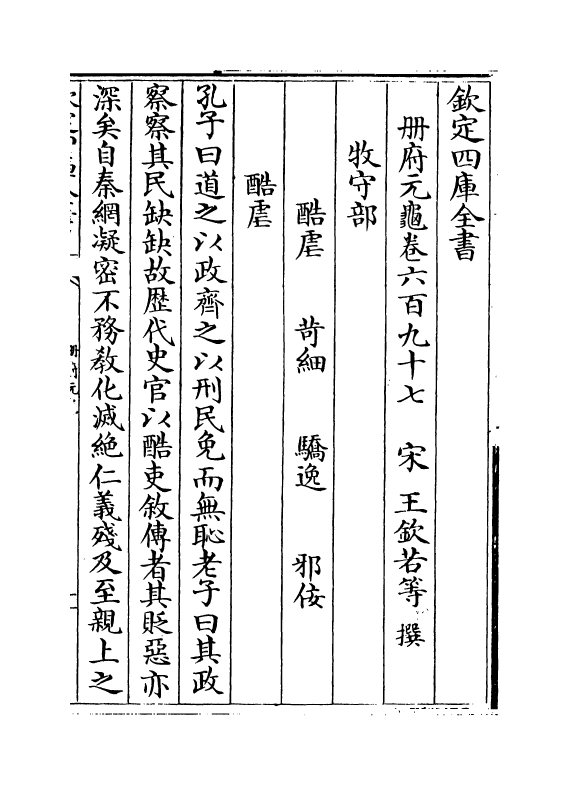 欽定四庫全書
冊府元龜卷六百九十七　宋　王欽若等　撰
牧守部
酷虐　苛細　驕逸　邪佞
酷虐
孔子曰道之以政齊之以刑民免而無恥老子曰其政
察察其民缺缺故歴代史官以酷吏敘傳者其貶惡亦
深矣自秦網凝密不務教化滅絶仁義殘及至親上之